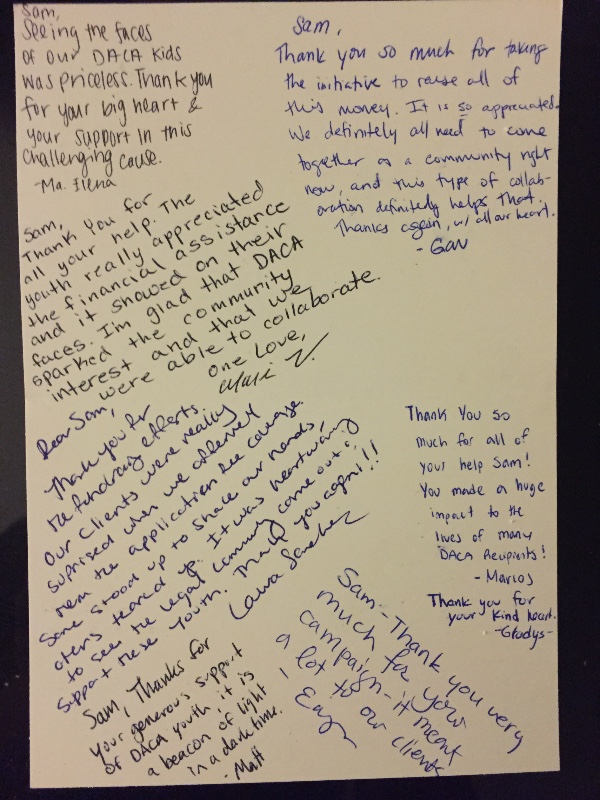 Sam,
Seeing the faces
of our DACA kids
was priceless. Thank you
for your big heart &
your support in this
challenging cause.
- Ma. Ilena
Sam,
Thank you so much for taking
the initiative to raise all of
this money. It is so appreciated.
We definitely all need to come
together as a community right
now, and this type of collab-
oration definitely helps that.
Thanks again, w/ all our heart.
- Gav
Sam,
Thank you for
all your help. The
youth really appreciated
the financial assistance
and it showed on their
faces. I'm glad that DACA
sparked the community
interest and that we
were able to collaborate.
One Love,
Dear Sam,
Thank you for
the fundraising efforts.
Our clients were really
suprised when we offered
them the application fee coverage.
Some stood up to share our hands,
others teared up. It was heartwarming
to see the legal community come out &
support these youth. Thank you again!!
Laura Sanchez
Thank you so
much for all of
your help Sam!
You made a huge
impact to the
lives of many
DACA Recipients!
- Marios
Thank you for
your kind heart.
- Gladys -
Sam, Thanks for
your generous support
of DACA youth, it is
a beacon of light
in a dark time.
- Matt
Sam - Thank you very
much for your
campaign - it meant
a lot to our clients